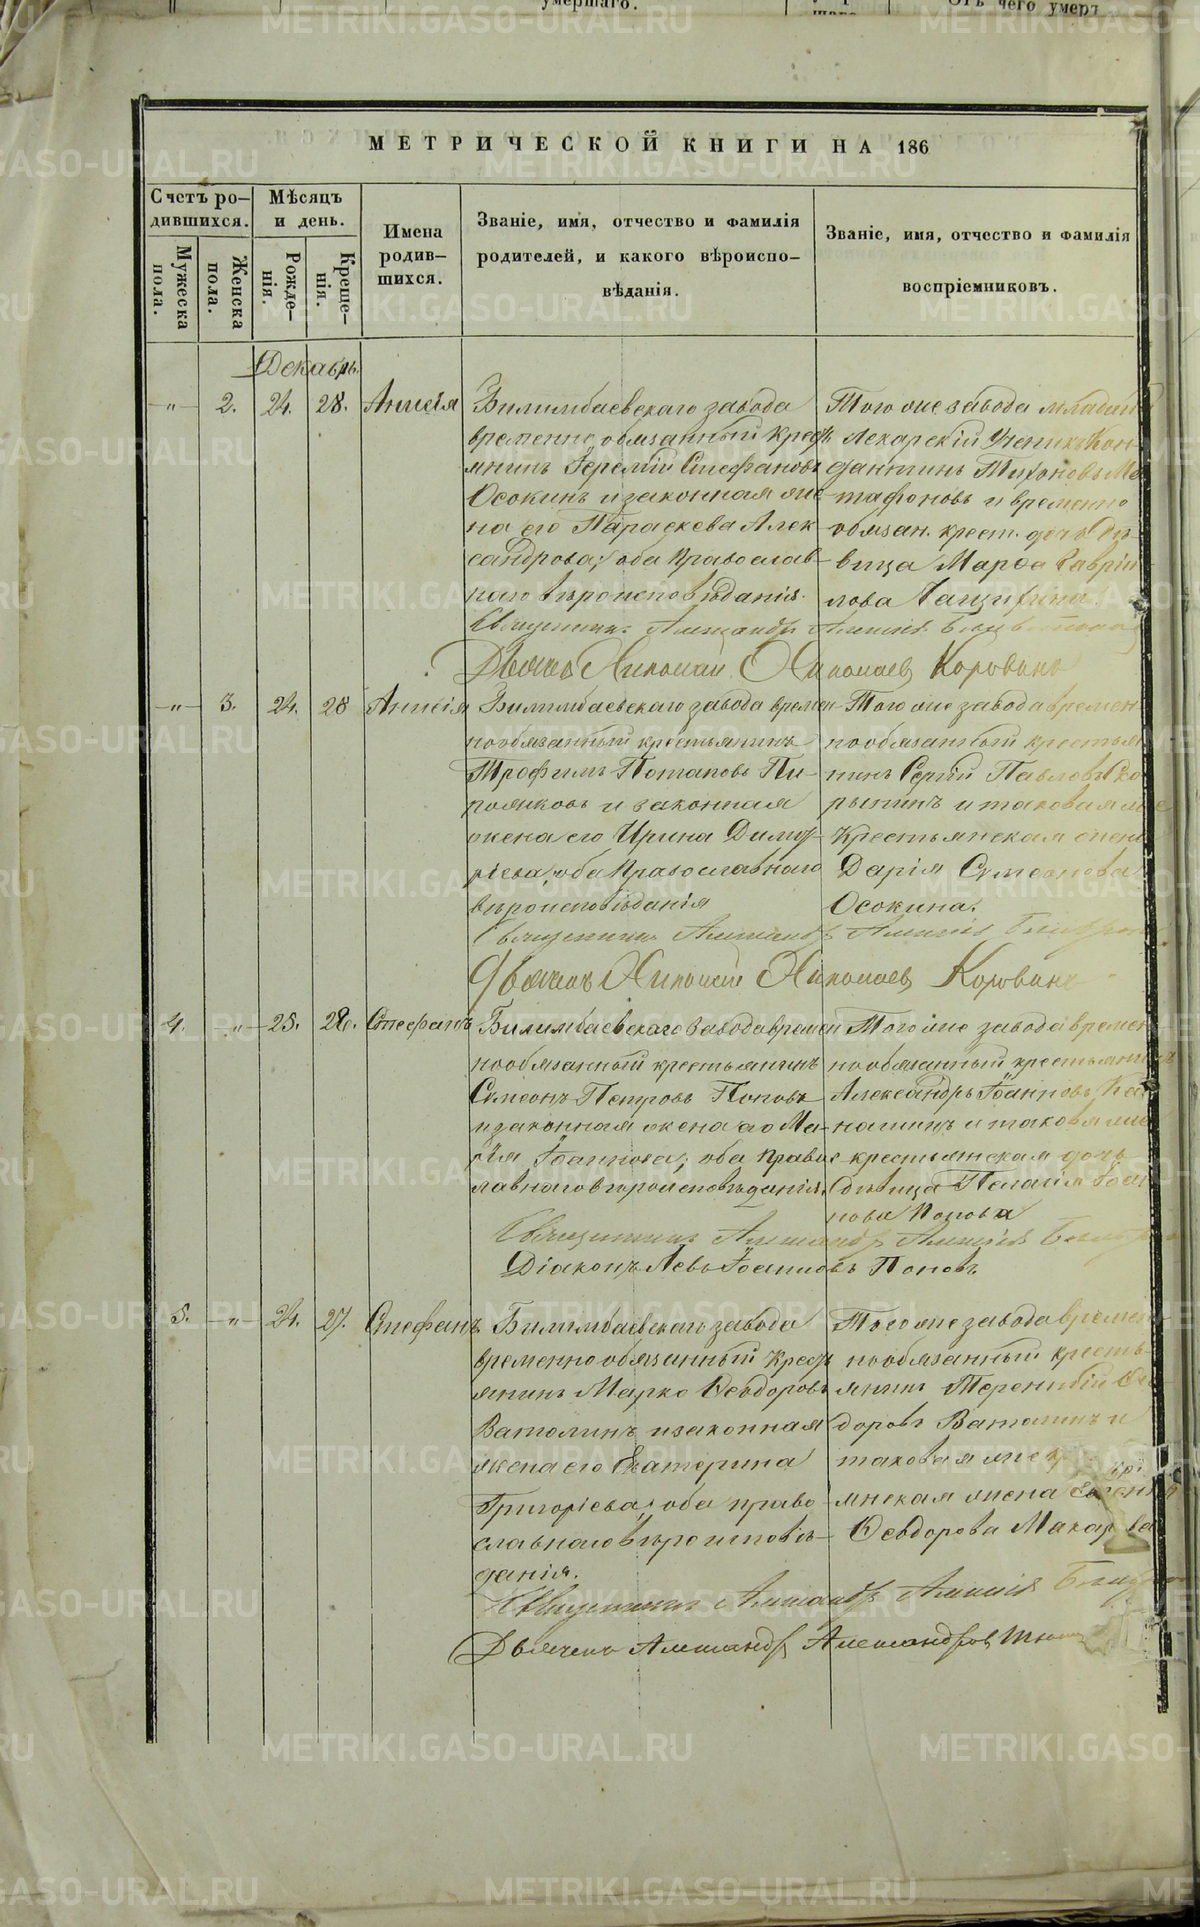 умершаго.
Отъ чего умеръ
МЕТРИЧЕСКОЙ КНИГИ НА 186
Счетъ ро-
дившихся.
Мѣсяцъ
и день.
Имена
родив-
шихся.
Званіе, имя, отчество и фамилія
родителей, и какого вѣроиспо-
вѣданія.
Званіе, имя, отчество и фамилія
воспріемниковъ.
Мужеска
пола.
Женска
пола.
Рожде-
нія.
Креще-
нія.
Декабрь
„ 2. 24. 28. Анисія
Билимбаевскаго завода
временно обязанный крест
янинъ Іеремій Стефановъ
Осокинъ и законная же-
на его Параскева Алек-
сандрова; оба православ-
наго вѣроисповѣданія.
Того же завода младшій
лекарскій ученикъ Кон-
дантинъ Тихоновъ
тафоновъ и временно
обязан. крест. дочь дѣ-
вица Марѳа Гаврій
лова
Священникъ Александръ Алексіевъ
Дьячекъ Николай Николаевъ Коровинъ
„ 3. 24. 28 Анисія
Билимбаевскаго завода времен
нообязанный крестьянинъ
Трофимъ Потаповъ Пи-
роляковъ и законная
жена его Ирина Димит-
ріева, оба православнаго
вѣроисповѣданія
Того же завода времен
нообязанный крестьян
нинъ Сергій Павловъ Ско
рынинъ и таковая же
крестьянская жена
Дарія Симеонова
Осокина.
Священникъ Александръ Алексіевъ
Дьячекъ Николай Николаевъ Коровинъ
4. „ 25. 26. Стефанъ
Билимбаевскаго завода времен
нообязанный крестьянинъ
Симеонъ Петровъ Поповъ
и законная жена его Ма-
рія Іоаннова; оба право
славнаго вѣроисповѣданія.
Того же завода времен
нообязанный крестьянинъ
Александръ Іоанновъ
нашинъ и таковая же
крестьянская дочь
дѣвица Пелагія Іоан
нова Попова
Священникъ Александръ Алексіевъ
Діаконъ Левъ Іоанновъ Поповъ
5. „ 24. 27. Стефанъ
Билимбаевскаго завода
временно обязанный крест
янинъ Марко Ѳеодоровъ
Ватолинъ и законная
жена его Екатерина
Григоріева; оба право
славнаго вѣроисповѣ-
данія.
Того же завода времен
нообязанный кресть-
янинъ Терентій Ѳео
доровъ Ватолинъ и
таковая же кр
янская жена Евгенія
Ѳеодорова Макарова
Священникъ Александръ Алексіевъ
Дьячекъ Александръ Александровъ
METRIKI.GASO-URAL.RU